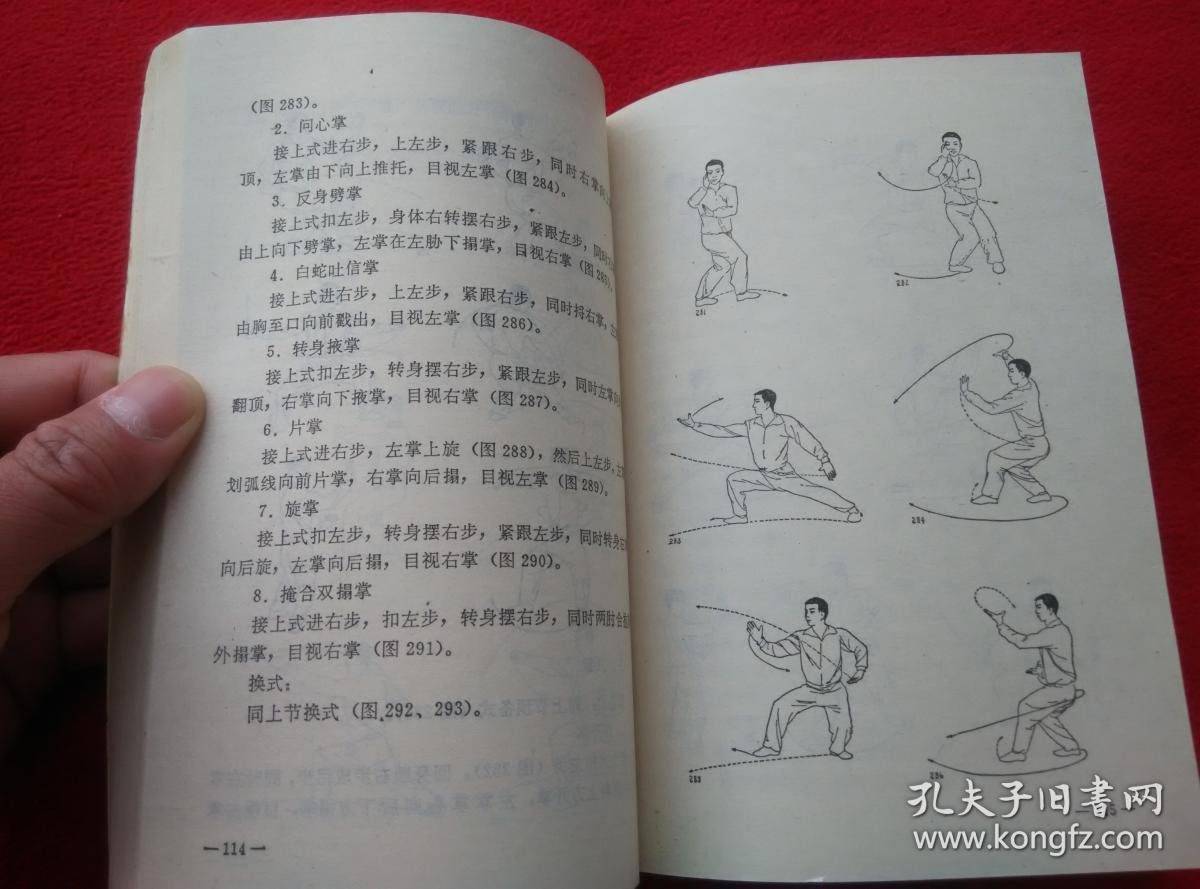 (图 283)。
2．问心掌
接上式进右步，上左步，紧跟右步，同时右掌向上
顶，左掌由下向上推托，目视左掌(图 284)。
3．反身劈掌
接上式扣左步，身体右转摆右步，紧跟左步，同时
由上向下劈掌，左掌在左胁下搨掌，目视右掌(图 285)。
4．白蛇吐信掌
接上式进右步，上左步，紧跟右步，同时拇右掌，左
由胸至口向前戳出，目视左掌(图 286)。
5．转身掖掌
接上式扣左步，转身摆右步，紧跟左步，同时左掌向
翻顶，右掌向下掖掌，目视右掌(图 287)。
6．片掌
接上式进右步，左掌上旋(图 288)，然后上左步，左
划弧线向前片掌，右掌向后搨，目视左掌(图 289)。
7．旋掌
接上式扣左步，转身摆右步，紧跟左步，同时转身右
向后旋，左掌向后搨，目视右掌(图 290)。
8．掩合双搨掌
接上式进右步，扣左步，转身摆右步，同时两肘合
外搨掌，目视右掌(图 291)。
换式：
同上节换式(图 292、293)。
—114—
281
282
283
284
285
286
孔夫子旧书网
www.kongfz.com